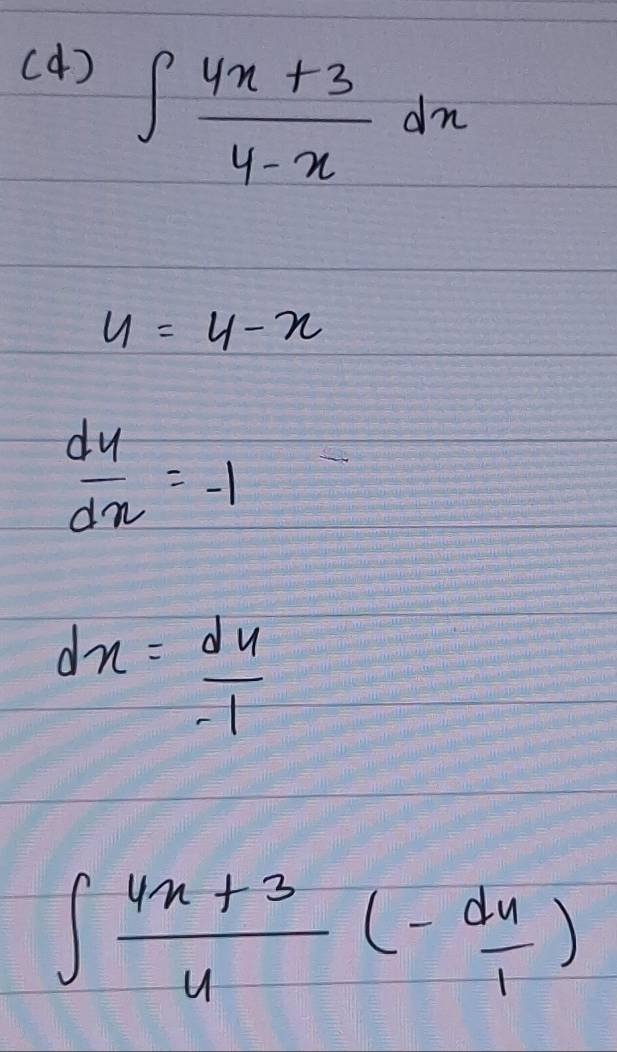 (d) ∫ (4x + 3)/(4 - x) dx
u = 4 - x
du/dx = -1
dx = du/-1
∫ (4x + 3)/u (- du/1)